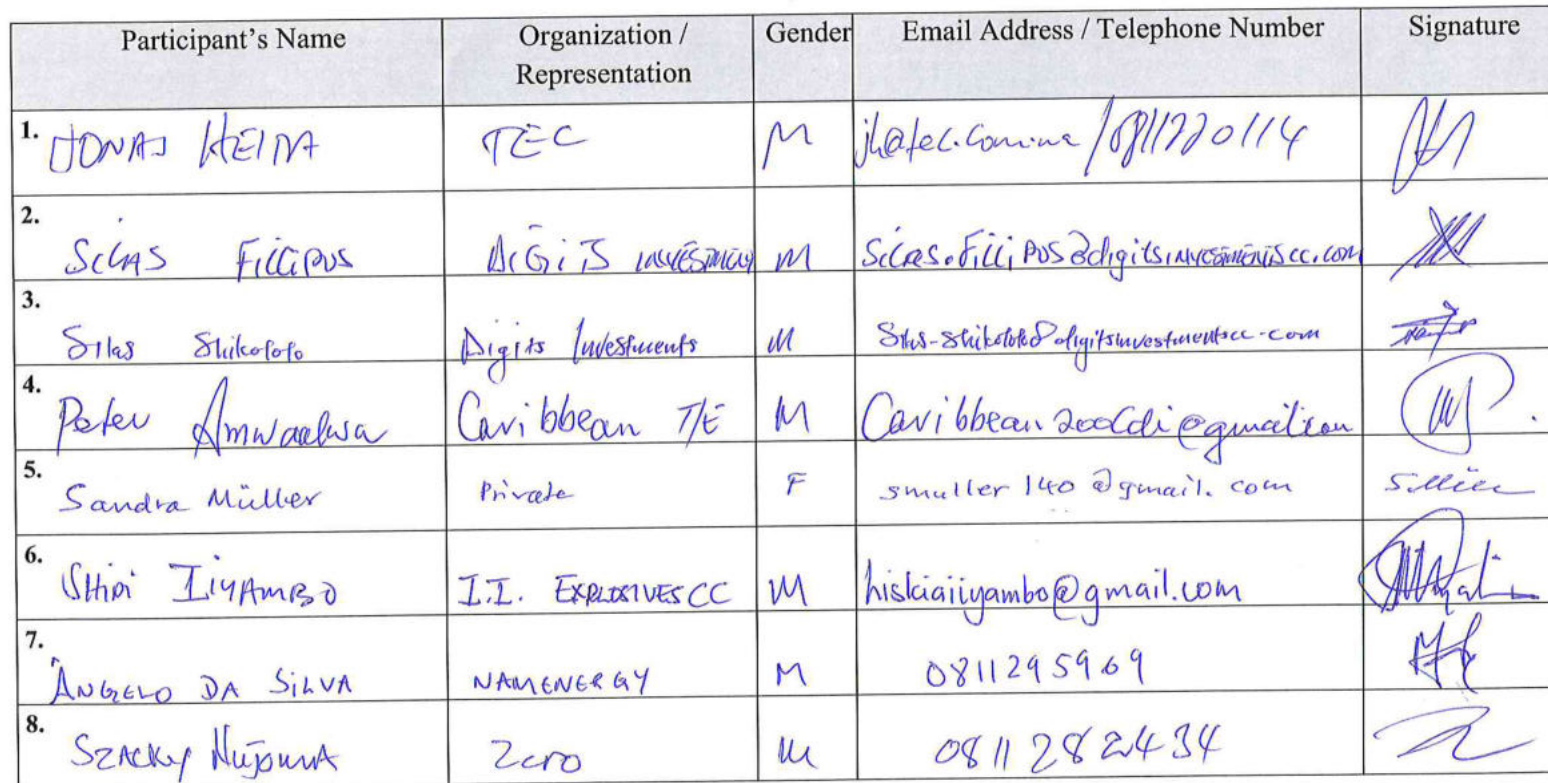 Participant's Name Organization / Representation Gender Email Address / Telephone Number Signature
1. JONAS HEITA TEC M jh@tec.com.na / 0811220114
2. SiLAS FiLLiPUS DiGiTS INVESTMENTS M Silas.FilliPUS@digitsinvestmentscc.com
3. Silas Shikololo Digits Investments M Silas-Shikololo@digitsinvestmentscc.com
4. Peter Amwaalwa Caribbean T/E M
5. Sandra Müller Private F smuller140@gmail.com
6. IiYAMBO I.I. EXPLOSIVES CC M hiskiaiiyambo@gmail.com
7. ÂNGELO DA SiLVA NAMENERGY M 0811295969
8. SZACKY NUJOMA Zero M 0811282434